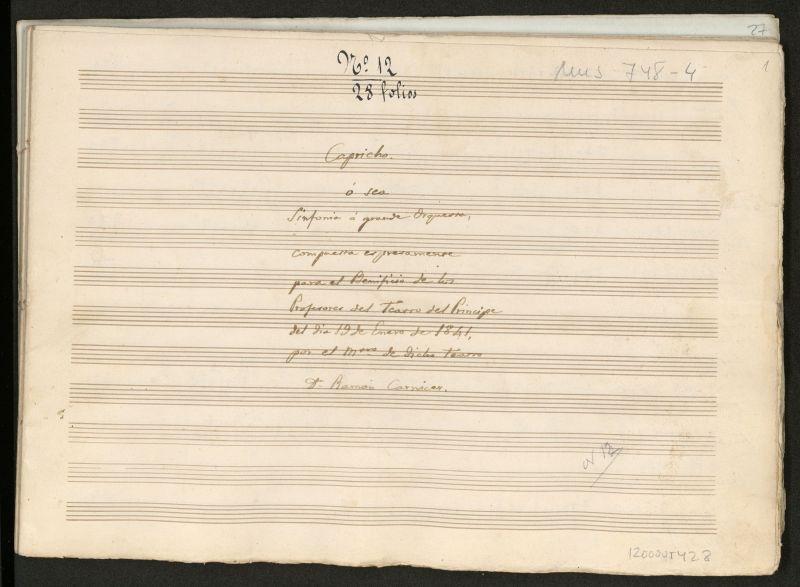 27
1
Nº 12
28 folios
Mus 748-4
Capricho.
ó sea
Sinfonia á grande Orquesta,
compuesta espresamente
para el Beneficio de los
Profesores del Teatro del Principe
del dia 19 de Enero de 1841,
por el Mtro de dicho Teatro
Dn Ramón Carnicer.
Nº 12
1200045428